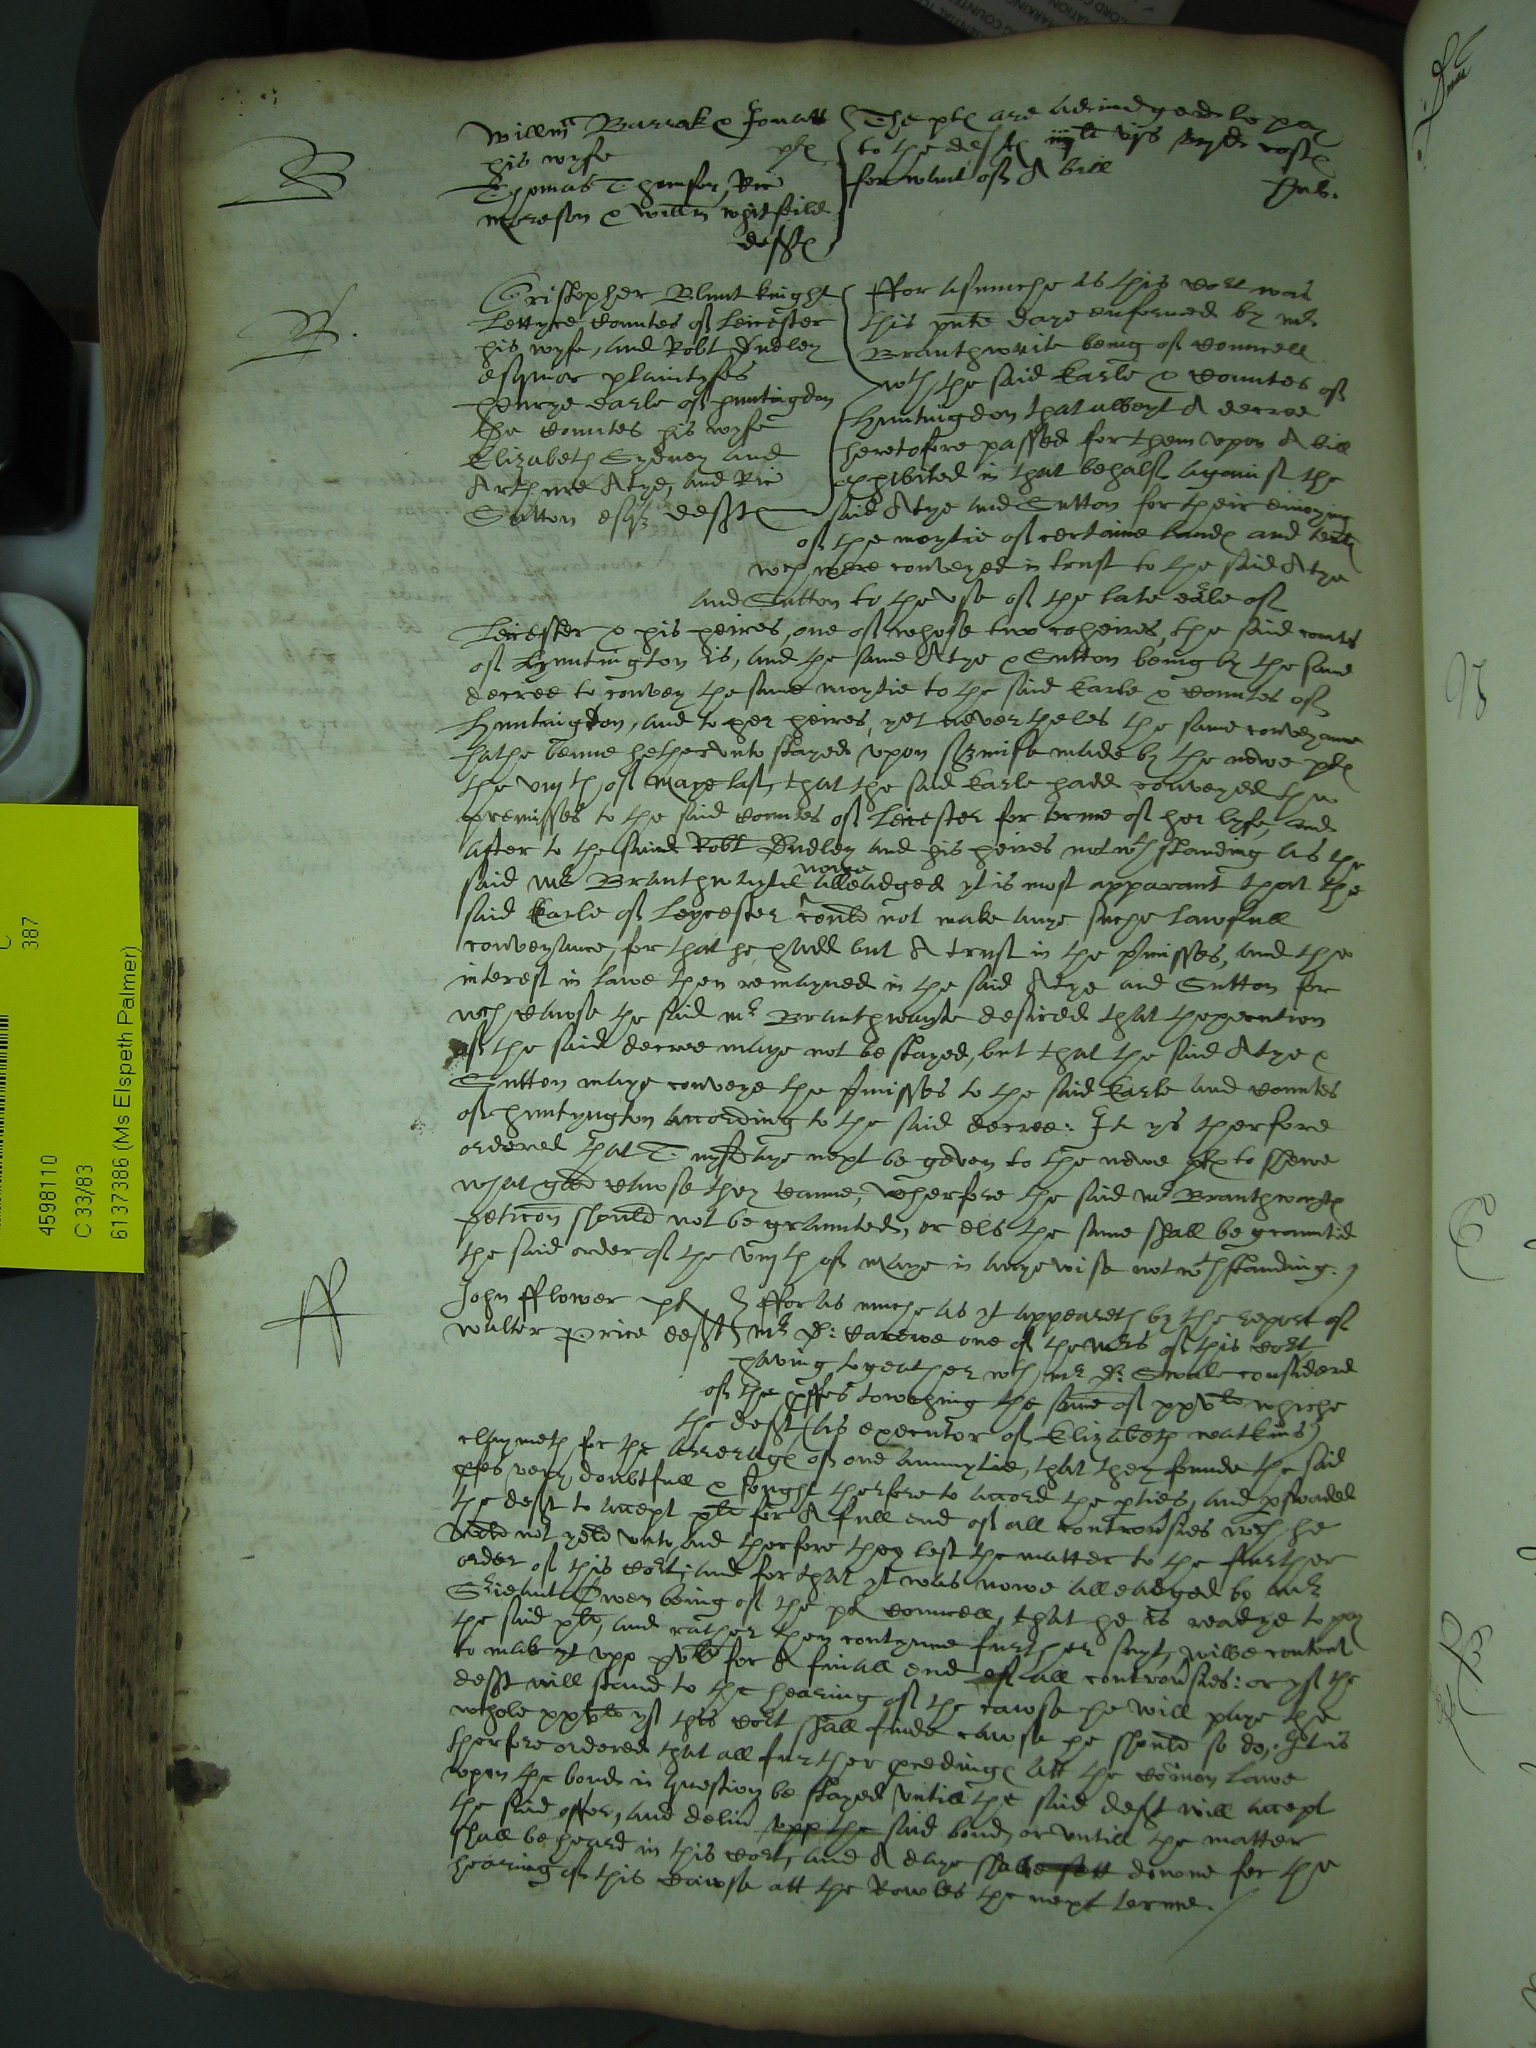 B
Willm Barrok & Jonah
his wyfe plt
Thomas Thomson, Ric
Moreson & Willm Whitfeild
defft
The plt are adiudged to pay
to the deft iiijli vjs viijd cost
for want of A bill
Jnb.
B.
Cristopher Blunt knight
Lettyce Countes of Leicester
his wyfe, and Robt Dudley
esquior plaintyfes
Henrye earle of Huntingdon
the Countes his wyfe
Elizabeth Sydney and
Arthure Atye, and Ric
Sutton esqs defft
ffor asmuche as this Cort was
this pnte daye enformed by mr
Branthwaite being of Councell
wth the said Earle & Countes of
Huntingdon that albeyt A decree
heretofore passed for them upon A bill
exhibited in that behalf against the
said Atye and Sutton for their enioying
of the moytie of certaine landes and tents
wch were conveyed in trust to the said Atye
and Sutton to the use of the late earle of
Leicester & his heires, one of whose two coheires, the said countes
of Hunttington is, and the same Atye & Sutton being by the same
decree to convey the same moytie to the said Earle & Countes of
Huntingdon, and to her heires, yet nevertheles the same conveyance
hathe benne hetherunto stayed upon surmise made by the newe plt
the viijth of Maye last, that the said Earle hadd conveyed the
premisses to the said Countes of Leicester for terme of her lyfe, and
after to the said Robt Dudley and his heires notwthstanding as the
said Mr Branthwayte nowe alleadged yt is most apparant that the
said Earle of Leycester could not make anye suche lawfull
conveyance, for that he hadd but A trust in the pmisses, and the
interest in lawe then remayned in the said Atye and Sutton for
wch cawse the said mr Branthwayte desired that thexecution
of the said decree maye not be stayed, but that the said Atye &
Sutton maye conveye the pmisses to the said Earle and Countes
of Huntyngton according to the said decree: It ys therfore
ordered that daye next be geven to the newe plt to shewe
what good cawse they canne, wherfore the said mr Branthwaytes
peticon should not be graunted, or els the same shall be graunted
the said order of the viijth of Maye in anye wise notwthstanding.
ff
John fflower plt
Walter Price defft
ffor as muche as yt appeareth by the report of
mr D: Carewe one of the mrs of this Cort
having togeather wth mr D: Swale considered
of the pffes towching the same of xxvli whiche
the defft (as executor of Elizabeth Watkins)
claymeth for the arrerages of one annuytie, that they founde the said
pfes very doubtfull & sought therfore to accord the pties, and pswaded
the defft to accept xli for A full end of all controvsies wch he
wold not yeld unto, and therfore they left the matter to the further
order of this Cort: and for that yt was nowe alleadged by mr
Srieant Owen being of the plt Councell, that he is readye to pay
the said xli, and rather then contynue further suyt, wilbe content
to mak yt upp xvli for A finall end of all controvsies: or yf the
defft will stand to the hearing of the cawse he will paye the
whole xxvli yf this Cort shall finde cawse he should so do, It is
therfore ordered that all further pcedinges att the Comon lawe
upon the bond in question be stayed untill the said deft will accept
the said offer, and deliu upp the said bond or untill the matter
shall be heard in this Cort, and A daye shalbe sett downe for the
hearing of this cawse att the Rowles the next terme.
C
387
4598110
C 33/83
6137386 (Ms Elspeth Palmer)